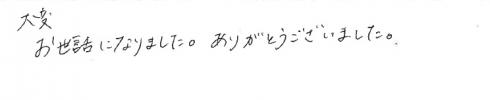 大変
お世話になりました。ありがとうございました。